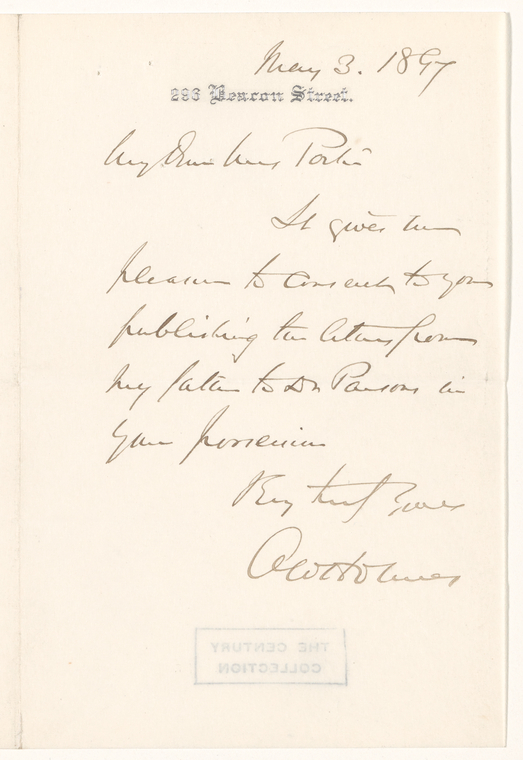 May 3. 1897
296 Beacon Street.
My Dear Miss Porter
It gives me
pleasure to consent to your
publishing the letters from
my father to Dr Parsons in
your possession
Very truly Yours
O W Holmes
THE CENTURY
COLLECTION